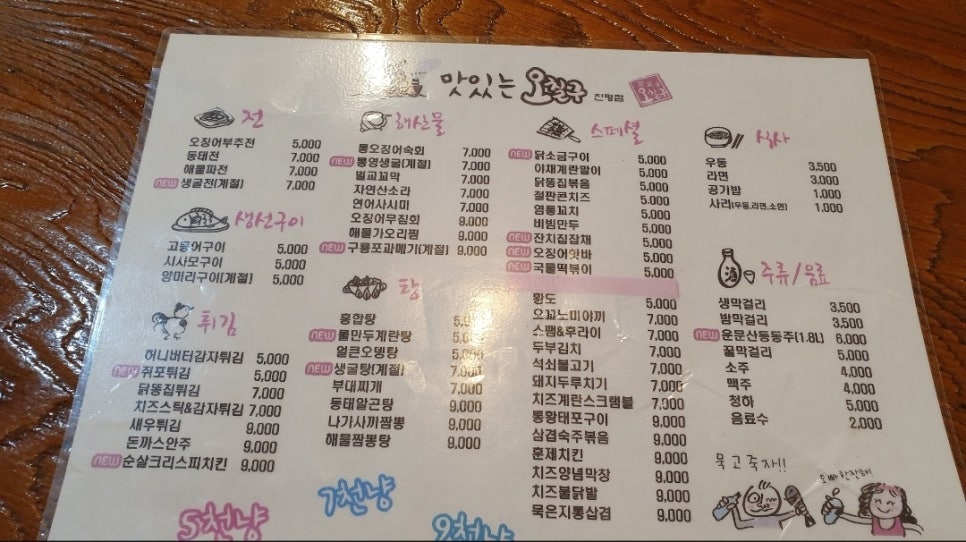 맛있는 오춘구 진평점
전
오징어부추전 5.000
동태전 7.000
해물파전 7.000
NEW 생굴전(계절) 7.000
생선구이
고등어구이 5.000
시사모구이 5.000
양미리구이(계절) 5.000
튀김
허니버터감자튀김 5.000
NEW 쥐포튀김 5.000
닭똥집튀김 7.000
치즈스틱&감자튀김 7.000
새우튀김 9.000
돈까스안주 9.000
NEW 순살크리스피치킨 9.000
해산물
통오징어숙회 7.000
NEW 통영생굴(계절) 7.000
벌교꼬막 7.000
자연산소라 7.000
연어사시미 7.000
오징어무침회 9.000
해물가오리찜 9.000
NEW 구룡포과메기(계절) 9.000
탕
홍합탕 5.000
NEW 물만두계란탕 5.000
얼큰오뎅탕 5.000
NEW 생굴탕(계절) 7.000
부대찌개 7.000
동태알곤탕 9.000
나가사끼짬뽕 9.000
해물짬뽕탕 9.000
스페셜
NEW 닭소금구이 5.000
야채계란말이 5.000
닭똥집볶음 5.000
철판콘치즈 5.000
염통꼬치 5.000
비빔만두 5.000
NEW 잔치집잡채 5.000
NEW 오징어핫바 5.000
NEW 국물떡볶이 5.000
황도 5.000
오꼬노미야끼 7.000
스팸&후라이 7.000
두부김치 7.000
석쇠불고기 7.000
돼지두루치기 7.000
치즈계란스크램블 7.000
통황태포구이 9.000
삼겹숙주볶음 9.000
훈제치킨 9.000
치즈양념막창 9.000
치즈불닭발 9.000
묵은지통삼겹 9.000
식사
우동 3.500
라면 3.000
공기밥 1.000
사리(우동,라면,소면) 1.000
주류/음료
생막걸리 3,500
밤막걸리 3,500
NEW 운문산동동주(1.8L) 6,000
꿀막걸리 5,000
소주 4,000
맥주 4,000
청하 5,000
음료수 2,000
묵고 죽자!!
오빠 한잔해!
5천냥
7천냥
9천냥